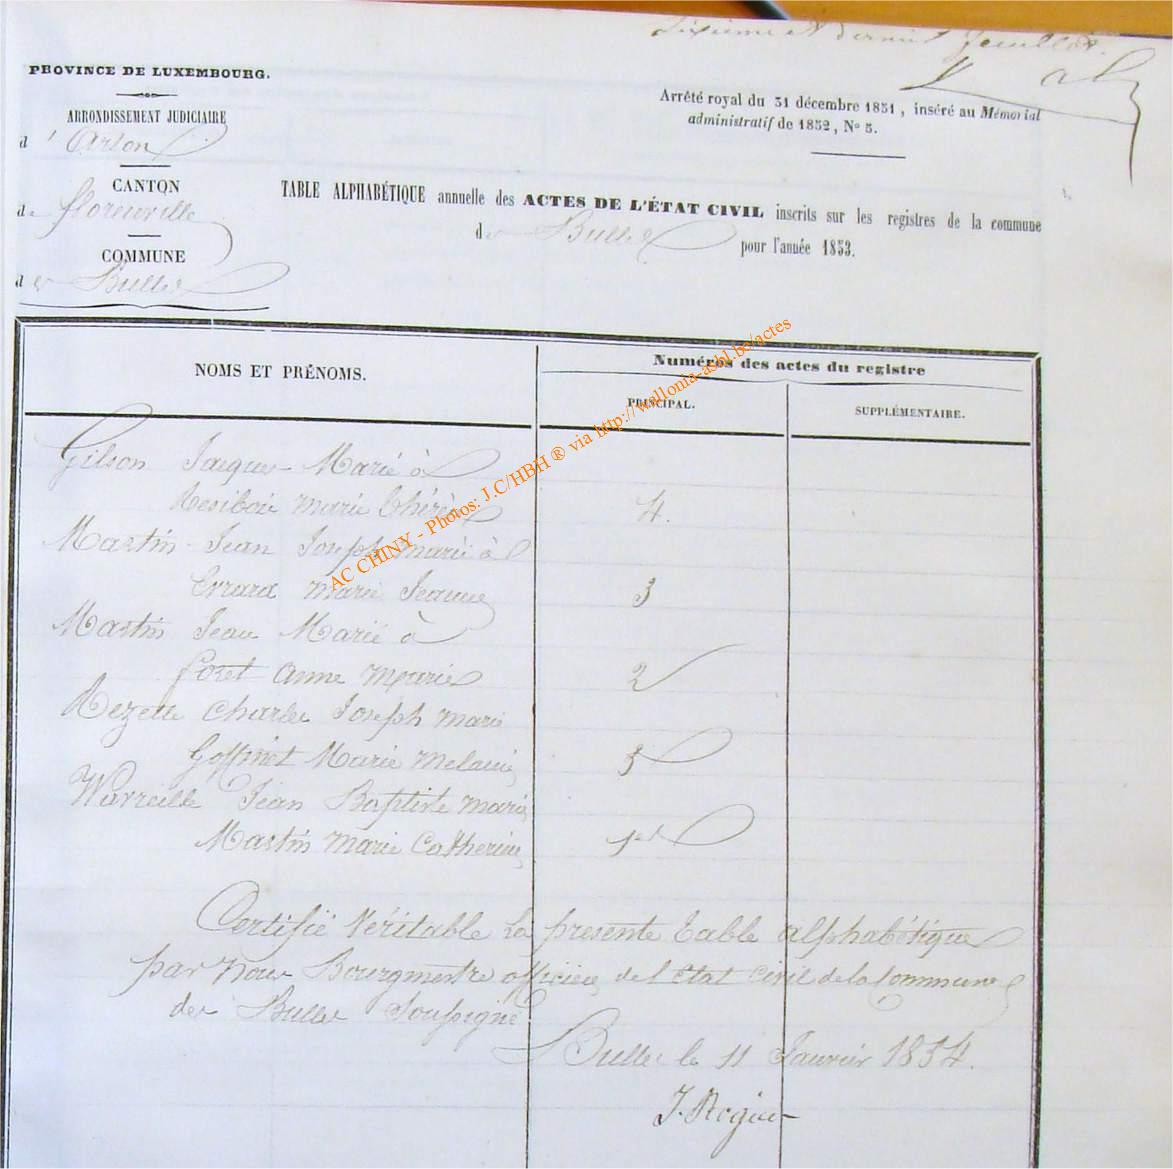 Sixième et dernier feuillet.
PROVINCE DE LUXEMBOURG.
ARRONDISSEMENT JUDICIAIRE
d'Arlon
CANTON
de florenville
COMMUNE
de Bulles
Arrêté royal du 31 décembre 1831, inséré au Mémorial
administratif de 1832, No 5.
TABLE ALPHABÉTIQUE annuelle des ACTES DE L'ÉTAT CIVIL inscrits sur les registres de la commune
de Bulles pour l'année 1853.
NOMS ET PRÉNOMS.
Numéros des actes du registre
PRINCIPAL.
SUPPLÉMENTAIRE.
Gilson Jacques Marié à
Resibois marie thérèse 4.
Martin Jean Joseph marié à
Errard marie Jeanne 3
Martin Jean Marié à
foret anne marie 2
Rezette Charles Joseph marié
Goffinet Marie melanie 5
Watreille Jean Baptiste marié
Martin marie Catherine 1er
Certifié Véritable la présente table alphabétique
par nous Bourgmestre officier de l'état civil de la Commune
de Bulles Soussigné
Bulles le 11 Janvier 1854.
AC CHINY - Photos: J.C/HBH ® via http://wallonia-asbl.be/actes